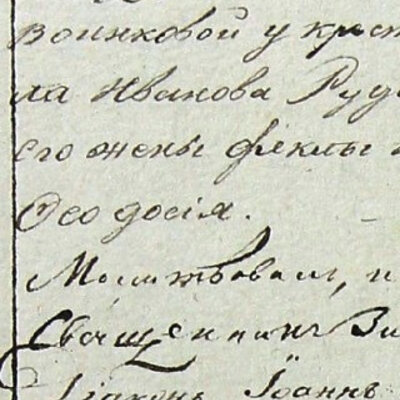 воинковой у крест
ла Иванова Руд
его жены феклы
Ѳеодосія.
Молитвовалъ, и
Священникъ Ви
Діаконъ Іоаннъ